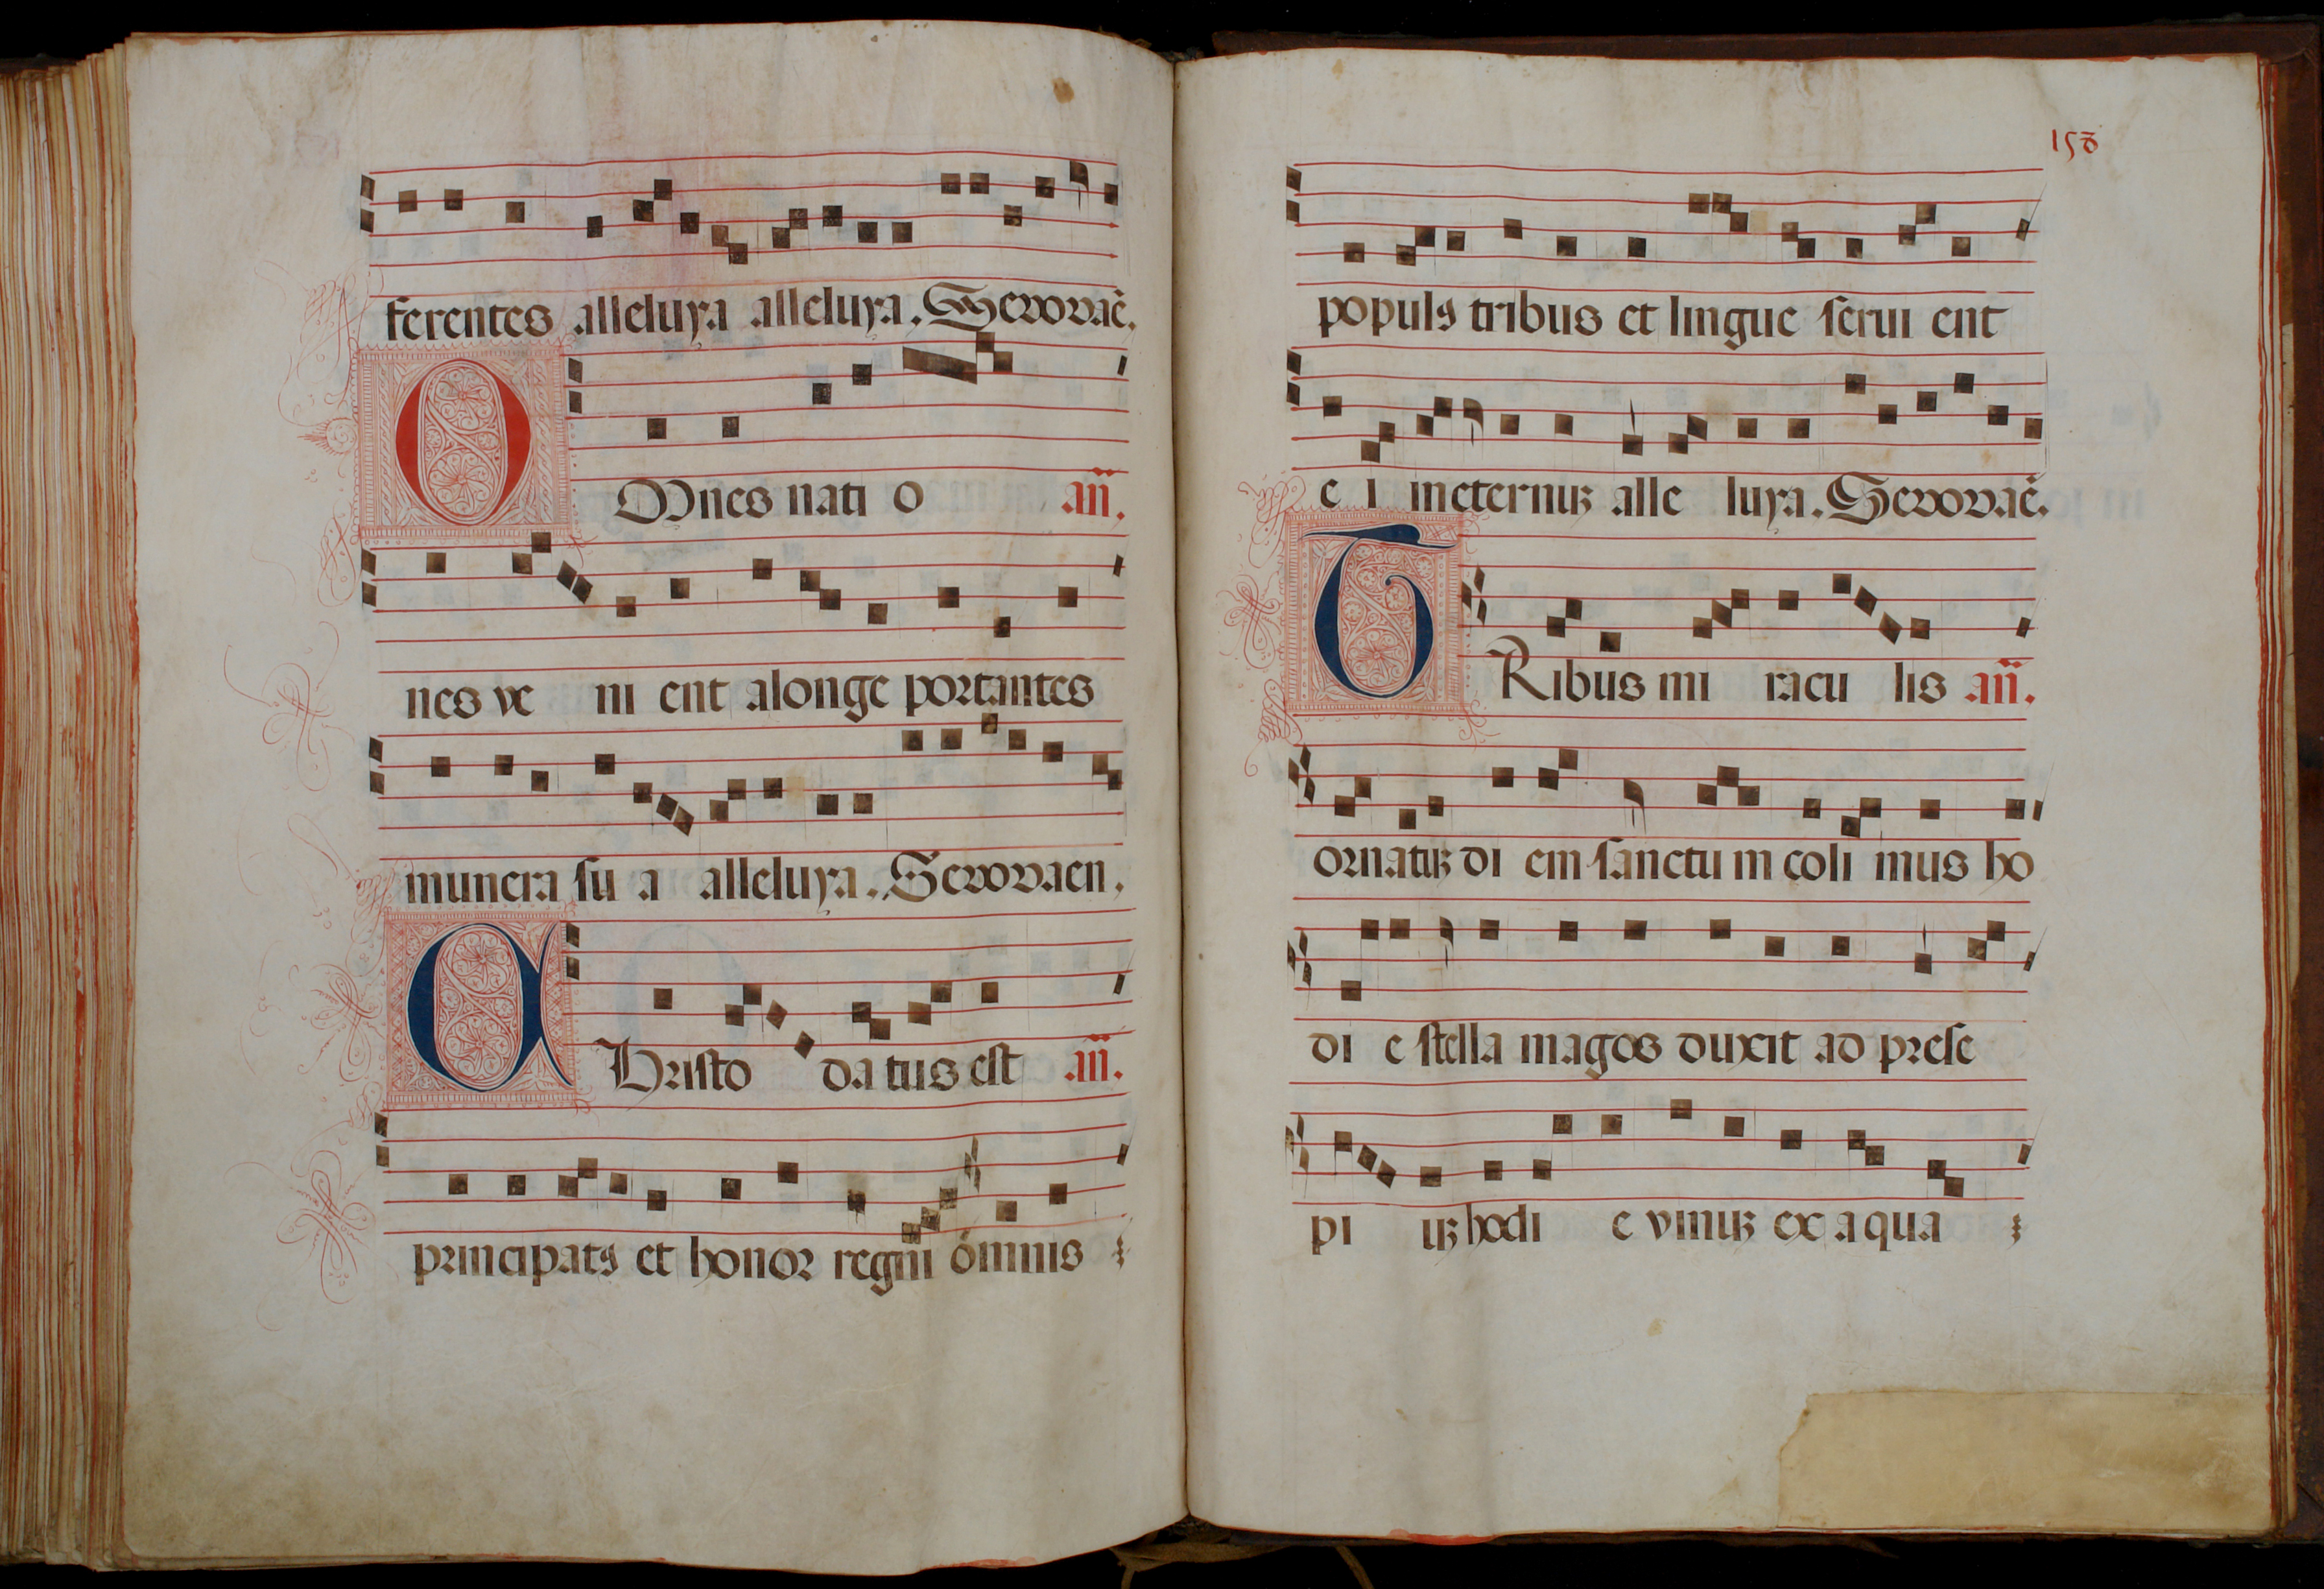 ferentes alleluya alleluya. Seuouaē.
OMnes nati o añ.
nes ve ni ent alonge portantes
munera su a alleluya. Seuouaen.
CHristo da tus est añ.
principatꝯ et honor regnū omnis ⁊
158
populꝯ tribus et lingue serui ent
e i ineternuꝫ alle luya. Seuouaē.
TRibus mi racu lis añ.
ornatuꝫ di em sanctu m coli mus ho
di e stella magos duxit ad prese
pi uꝫ hodi e vinuꝫ ex aqua ⁊